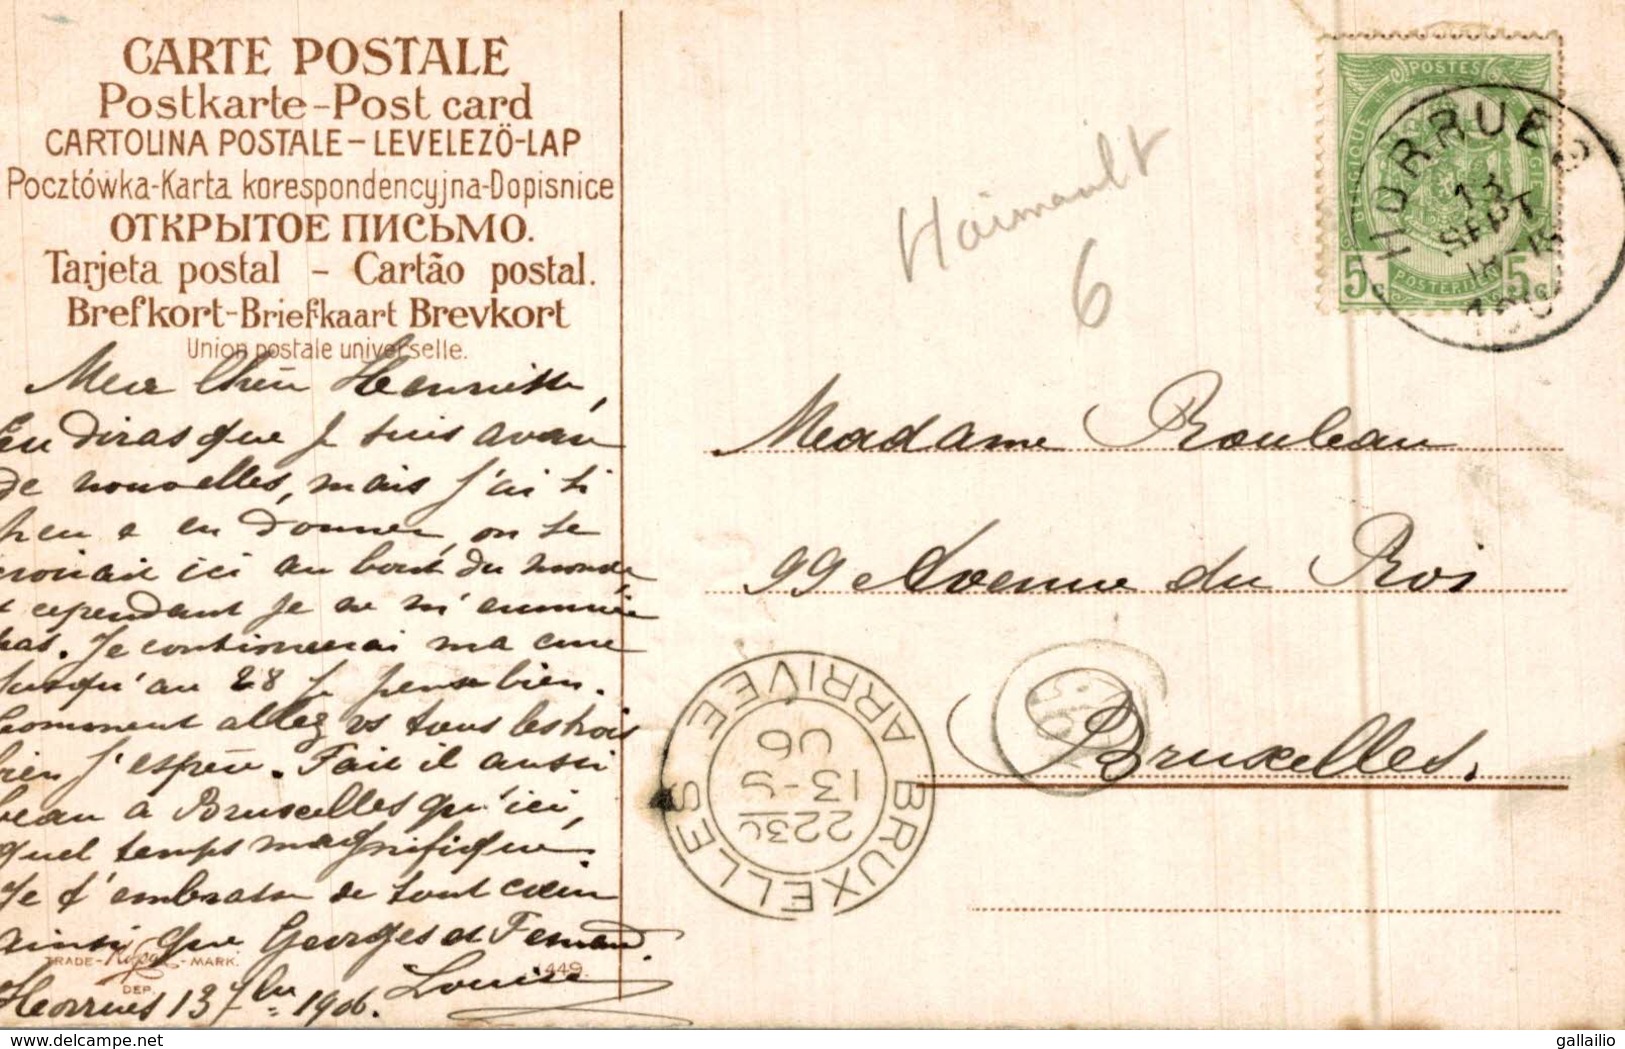 CARTE POSTALE
Postkarte-Post card
CARTOLINA POSTALE-LEVELEZÖ-LAP
Pocztówka-Karta korespondencyjna-Dopisnice
ОТКРЫТОЕ ПИСЬМО.
Tarjeta postal - Cartão postal.
Brefkort-Briefkaart Brevkort
Union postale universelle.
Ma chère Henriette,
Tu diras que je suis avare
de nouvelles, mais j'ai si
peu à en donner, on se
croirait ici au bout du monde,
et cependant je ne m'ennuie
pas. Je continuerai ma cure
jusqu'au 28 je pense bien.
Comment allez vs tous les trois
bien j'espère. Fait il aussi
beau à Bruxelles qu'ici,
quel temps magnifique.
Je t'embrasse de tout cœur
ainsi que Georges et Fernand.
Louise
Horrues 13 7bre 1906.
TRADE- -MARK.
DEP.
449.
Hainault
6
POSTES
BELGIQUE
BELGIË
POSTERIJEN
5c 5c
HORRUES
13
SEPT
Madame Rouleau
99 Avenue du Roi
Bruxelles.
BRUXELLES ARRIVEE
2230
13-9
06
gallailio
www.delcampe.net